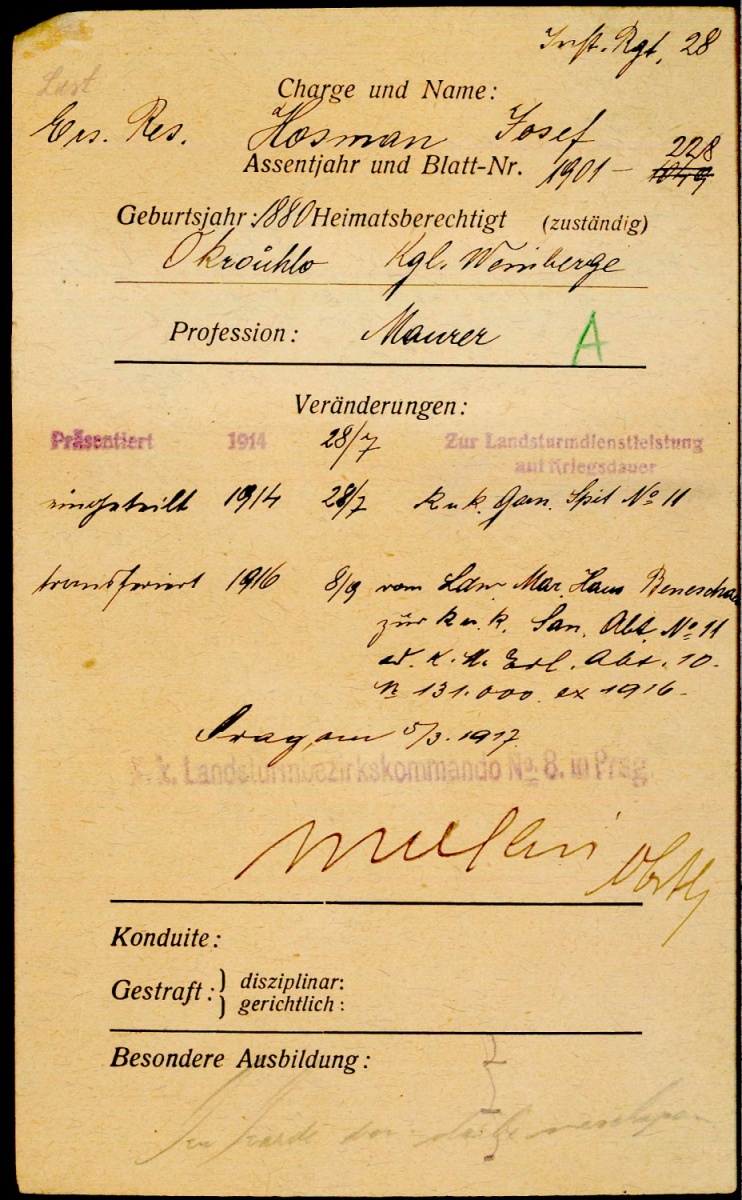 Inft. Rgt. 28
Charge und Name:
Ers. Res. Hosman Josef
228
Assentjahr und Blatt-Nr. 1901 –
Geburtsjahr: 1880 Heimatsberechtigt (zuständig)
Okrouhlo Kgl. Weinberge
Profession: Maurer A
Veränderungen:
Präsentiert 1914 28/7 Zur Landsturmdienstleistung
auf Kriegsdauer
eingeteilt 1914 28/7 k. u. k. Garn. Spit. No 11
transferiert 1916 8/9 vom Ldw. Mar. Haus Beneschau
zur k. u. k. San. Abt. No 11
Erl. Abt. 10.
No 131.000 ex 1916.
Prag, am 5/3. 1917.
k. k. Landsturmbezirkskommando No 8. in Prag.
Obstlt
Konduite:
Gestraft: } disziplinar:
gerichtlich:
Besondere Ausbildung: